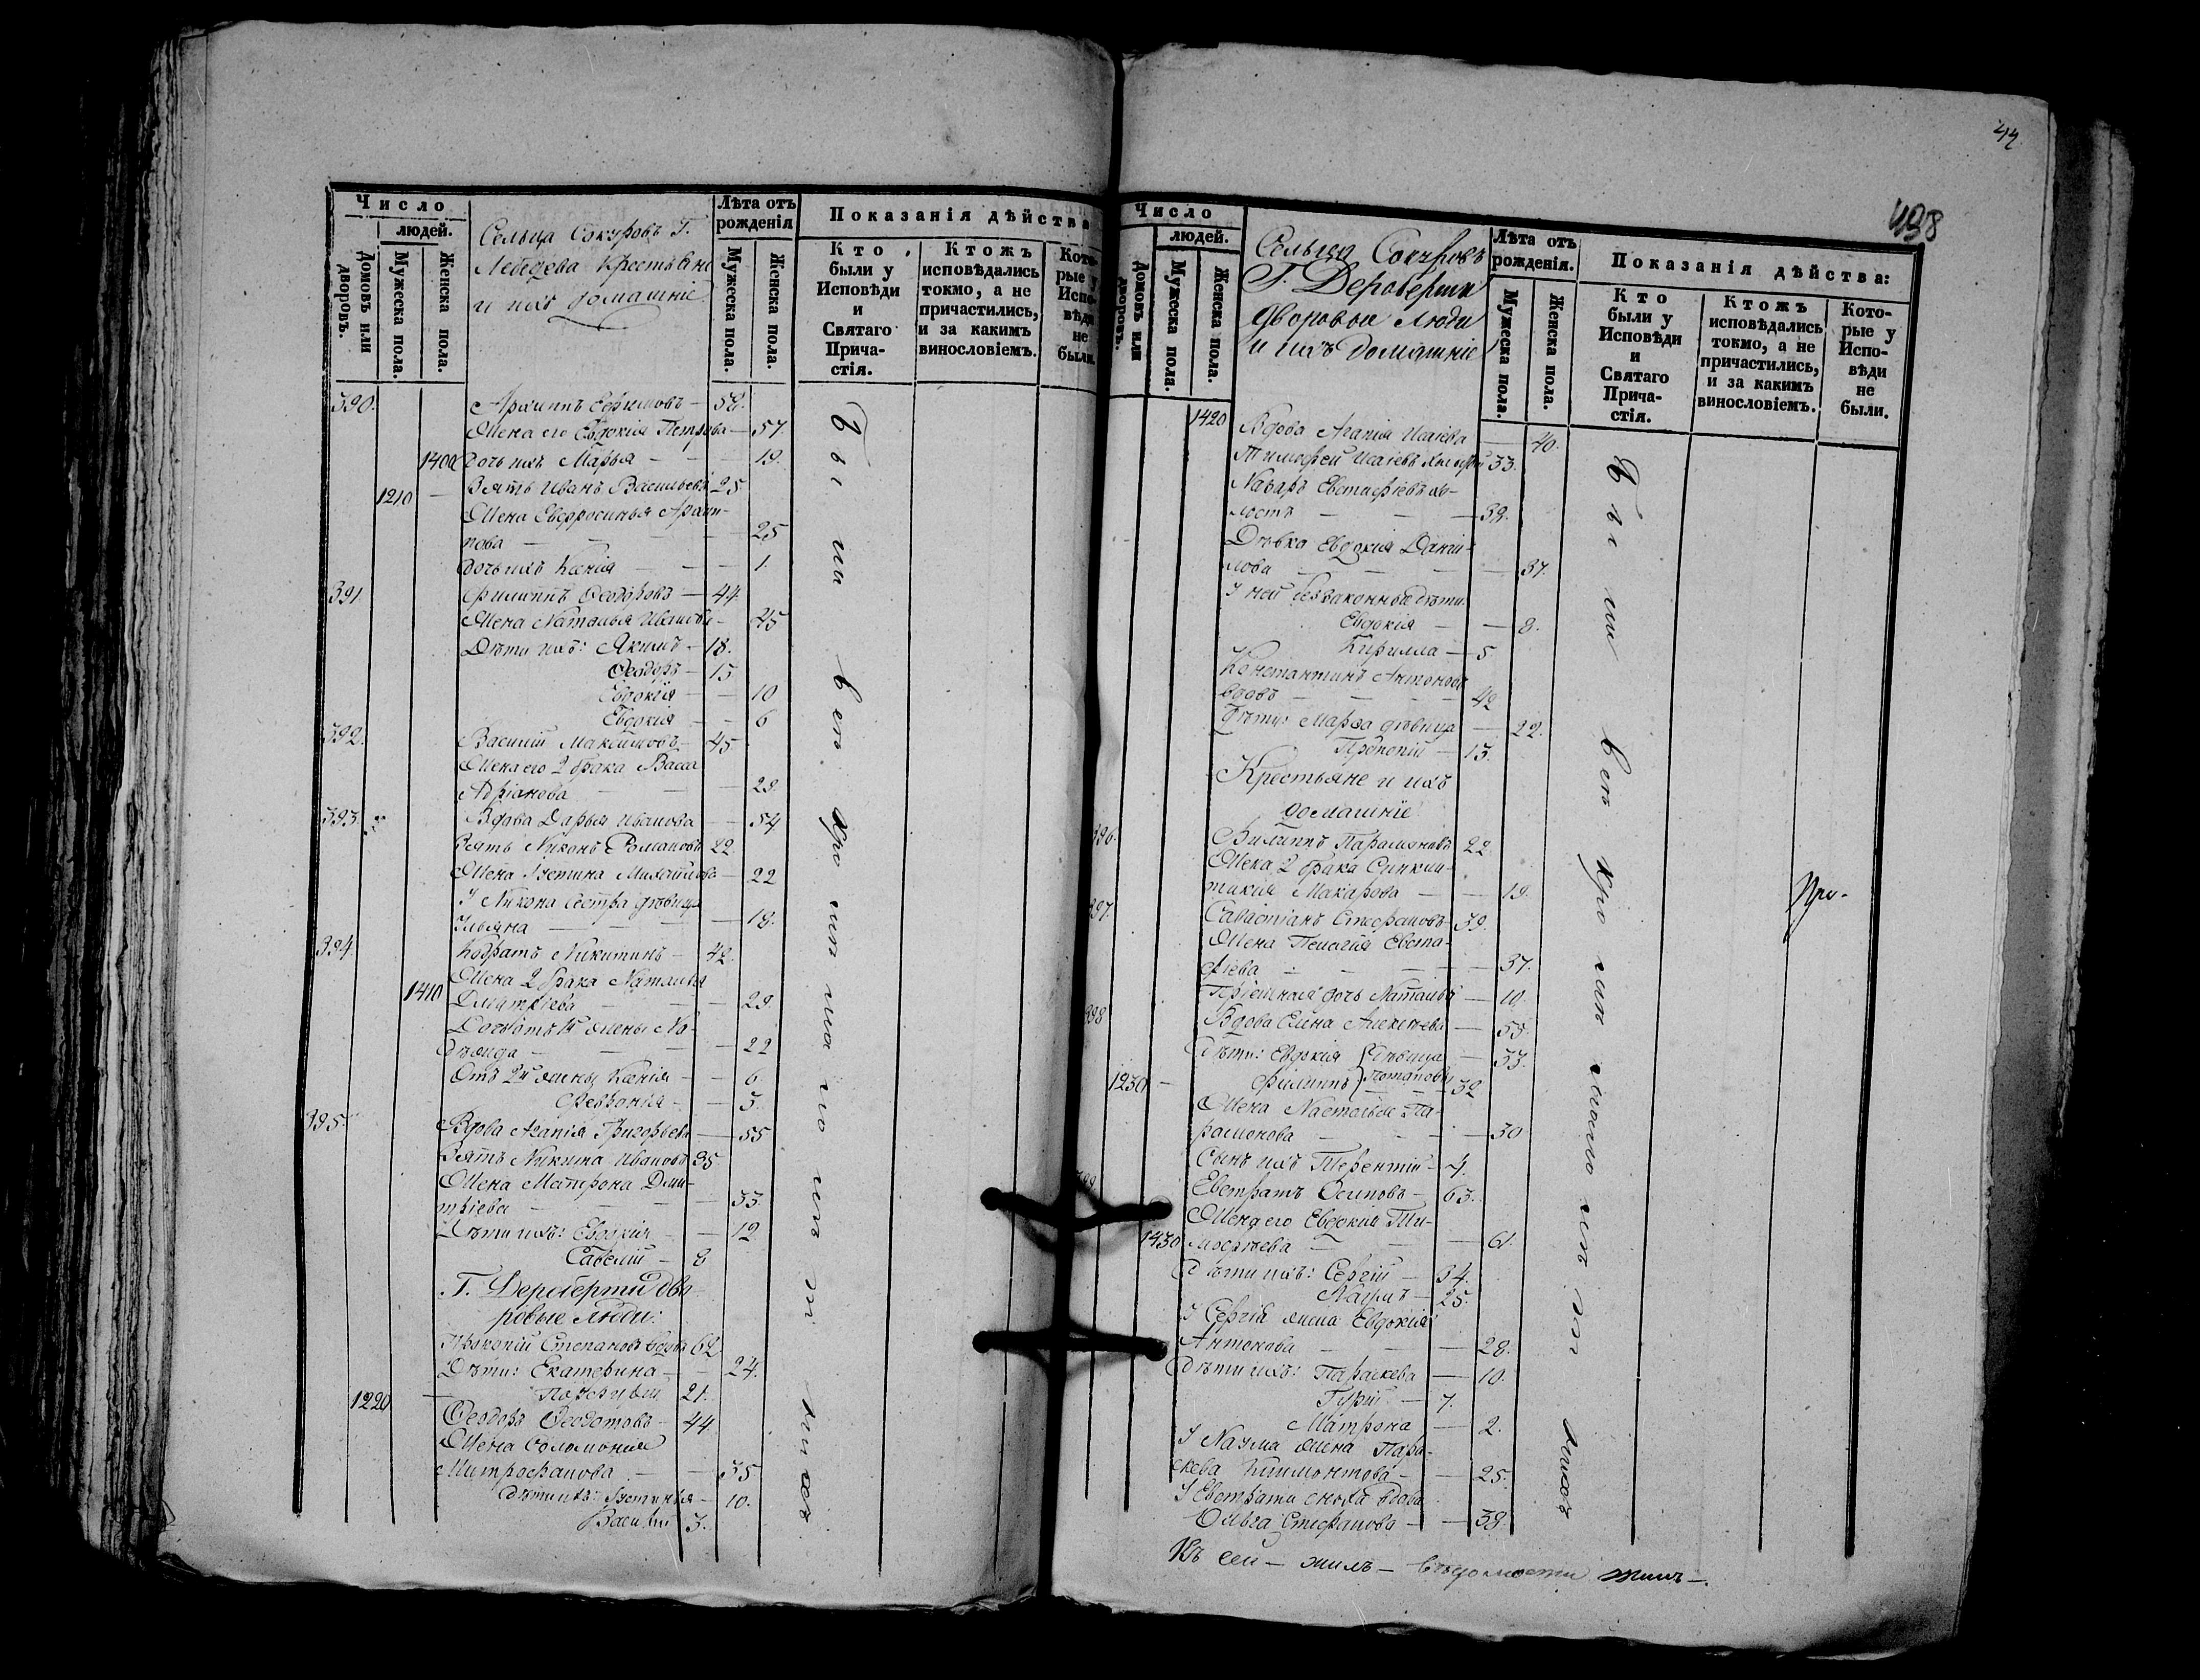 Число
людей.
Домовъ или дворовъ.
Мужеска пола.
Женска пола.
Сельца Сокуровъ Г.
Лебедева Крестьяне
и ихъ домашніе
Лѣта отъ рожденія
Мужеска пола.
Женска пола.
Показанія дѣйства
Кто были у Исповѣди и Святаго Прича-стія.
Ктожъ исповѣдались токмо, а не причастились, и за какимъ винословіемъ.
Кото-рые у Испо-вѣди не были.
390. Архиппъ Ефимовъ — 58.
Жена его Евдокія Петрова — 57.
1400 дочь ихъ Марья — 19.
1210 — Зять Иванъ Васильевъ 25
Жена Евфросинья Архип-
пова — 25
дочь ихъ Ксенія — 1.
391 Филиппъ Феодоровъ — 44.
Жена Наталья Иванова — 45
Дѣти ихъ: Якимъ — 18.
Феодоръ — 15
Евдокія — 10
Евдокія — 6
392. Василій Максимовъ — 45
Жена его 2 брака Васса
Адріанова — 29
393 Вдова Дарья Иванова — 54
Зять Никонъ Романовъ 22.
Жена Устина Михайлова — 22
У Никона сестра дѣвица
Ульяна — 18.
394. Кодратъ Никитинъ — 42.
Жена 2 брака Наталья
1410 Дмитріева — 29.
Дочь отъ 1й жены На-
дежда — 22
Отъ 2й жены Ксенія — 6
Февронія — 3.
395. Вдова Агапія Григорьева — 55
Зять Никита Ивановъ 35
Жена Матрона Дми-
тріева — 33
Дѣти ихъ: Евдокія — 12
Савелій — 8
Г. Дероберти дво
ровые люди:
Прокопій Степановъ вдовъ 62
Дѣти: Екатерина — 24.
1220 — 21.
Феодоръ Феодотовъ — 44
Жена Соломонія
Митрофанова — 35
Дѣти ихъ: Устинья — 10.
Василій 3.
Были
всѣ
44
498
Число
людей.
Домовъ или дворовъ.
Мужеска пола.
Женска пола.
Сельца Сокуровъ
Г. Дероберти
дворовыи люди
и ихъ домашніе
Лѣта отъ рожденія.
Мужеска пола.
Женска пола.
Показанія дѣйства:
Кто были у Исповѣди и Святаго Прича-стія.
Ктожъ исповѣдались токмо, а не причастились, и за какимъ винословіемъ.
Кото-рые у Испо-вѣди не были.
1420 Вдова Агапія Исаіева — 40.
Тимофей Исаіевъ 33.
Назаръ Евстафіевъ хо-
лостъ — 32.
Дѣвка Евдокія Дании-
лова — 37.
У ней беззаконные дѣти:
Евдокія — 8.
Кирилла — 5
Константинъ Антоновъ
вдовъ — 42
Дѣти: Марфа дѣвица — 22.
Прокопій — 13.
Крестьяне и ихъ
домашніе
396. Филиппъ Парамоновъ 22
Жена 2 брака Синкли-
тикія Макарова — 19
397. Савастіанъ Стефановъ — 39.
Жена Пелагія Евста-
фіева — 37.
Пріемная дочь Наталья — 10
398 Вдова Елена Алексѣева — 55.
Дѣти: Евдокія дѣвица — 33.
1230 — Филиппъ Потаповы — 32
Жена Наталья Па-
рамонова — 30
Сынъ ихъ Терентій — 4.
399 Евстратъ Осиповъ — 63.
Жена его Евдокія Ти-
1430 мофѣева — 61.
Дѣти ихъ: Сергій — 34.
Наумъ — 25.
У Сергія жена Евдокія
Антонова — 28.
Дѣти ихъ: Параскева — 10.
Гурій — 7.
Матрона — 2.
У Наума жена Пара-
скева Климонтова — 25.
У Евстрата сноха вдова
Ольга Стефанова — 38.
Были
всѣ
При-
Къ сей — вѣдомости